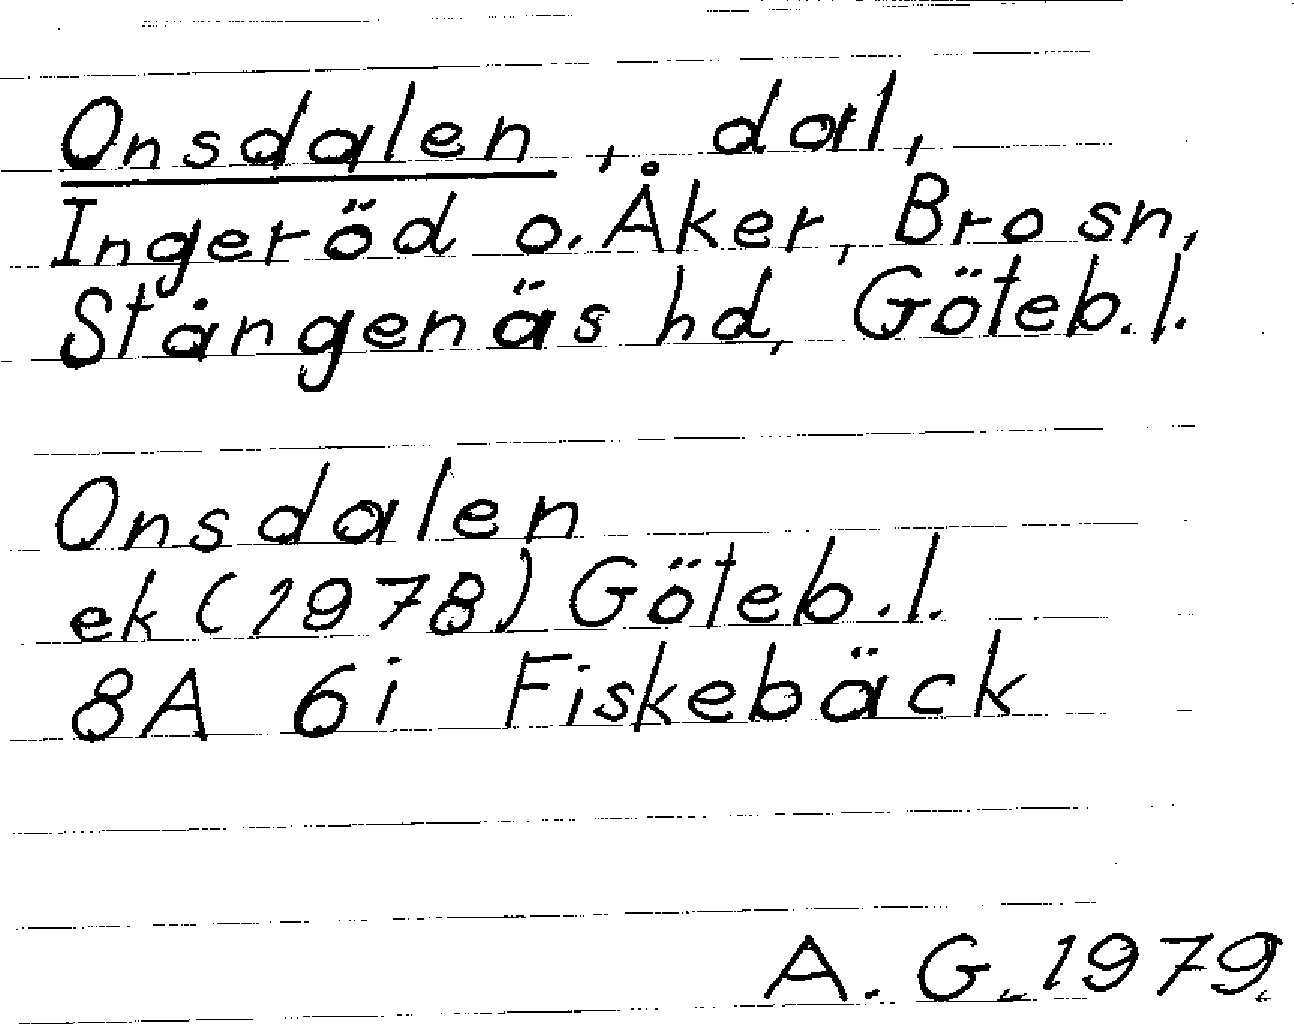 Onsdalen, dal,
Ingeröd o. Åker, Bro sn,
Stångenäs hd, Göteb.l.
Onsdalen
ek (1978) Göteb.l.
8A 6i Fiskebäck
A.G. 1979